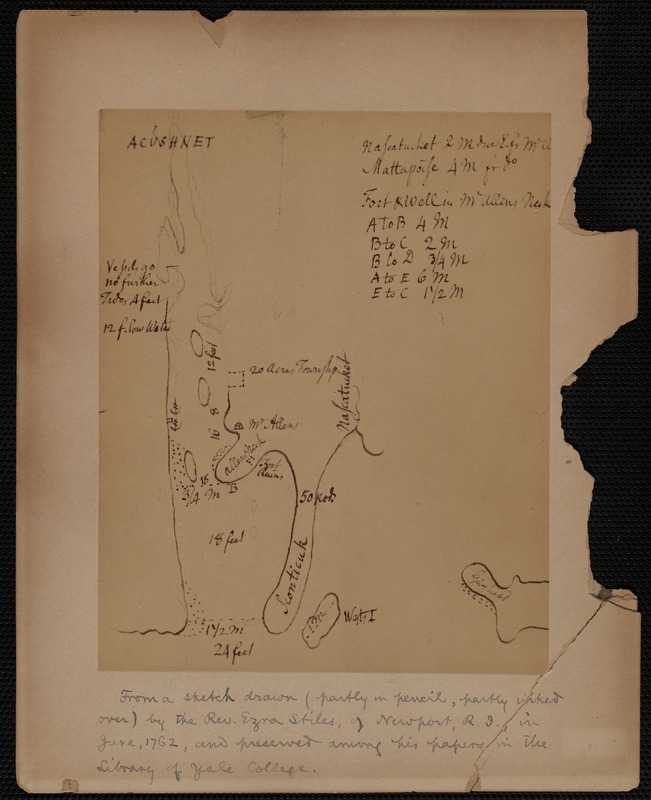 ACUSHNET
Nascatucket 2 M due E. fr Mr A
Mattapoise 4 M fr do
Fort & Well in Mr Allens Neck
A to B 4 M
B to C 2 M
B to D 3/4 M
A to E 6 M
E to C 1 1/2 M
Vessels go
no further
Tides 4 feet
12 f. low Water
12 feet
20 Acres Township
8
16
B Mr Allens
Allens Neck
Fort
Ruins
Nascatucket
18
3/4 M
B
50 rods
18 feet
Sconticuk
1 1/2 M
24 feet
1 M
West I
From a sketch drawn (partly in pencil, partly inked
over) by the Rev. Ezra Stiles, of Newport, R. I., in
June, 1762, and preserved among his papers in the
Library of Yale College.